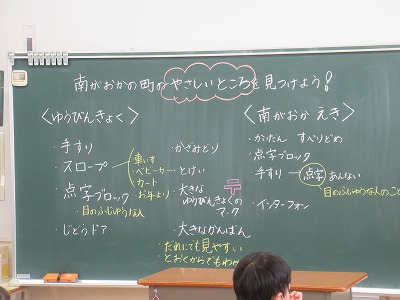 南がおかの町のやさしいところを見つけよう!
<ゆうびんきょく>
・手すり
・スロープ
車いす
ベビーカー
カート
お年より
・点字ブロック
目のふじゆうな人
・じどうドア
・かさみどり
・とけい
・大きな
ゆうびんきょくの
マーク
〒
・大きなかんばん
だれにでも見やすい
とおくからでもわか
<南がおか えき>
・かいだん すべりどめ
・点字ブロック
・手すり ― 点字 あんない
目のふじゆうな人のこと
・インターフォン